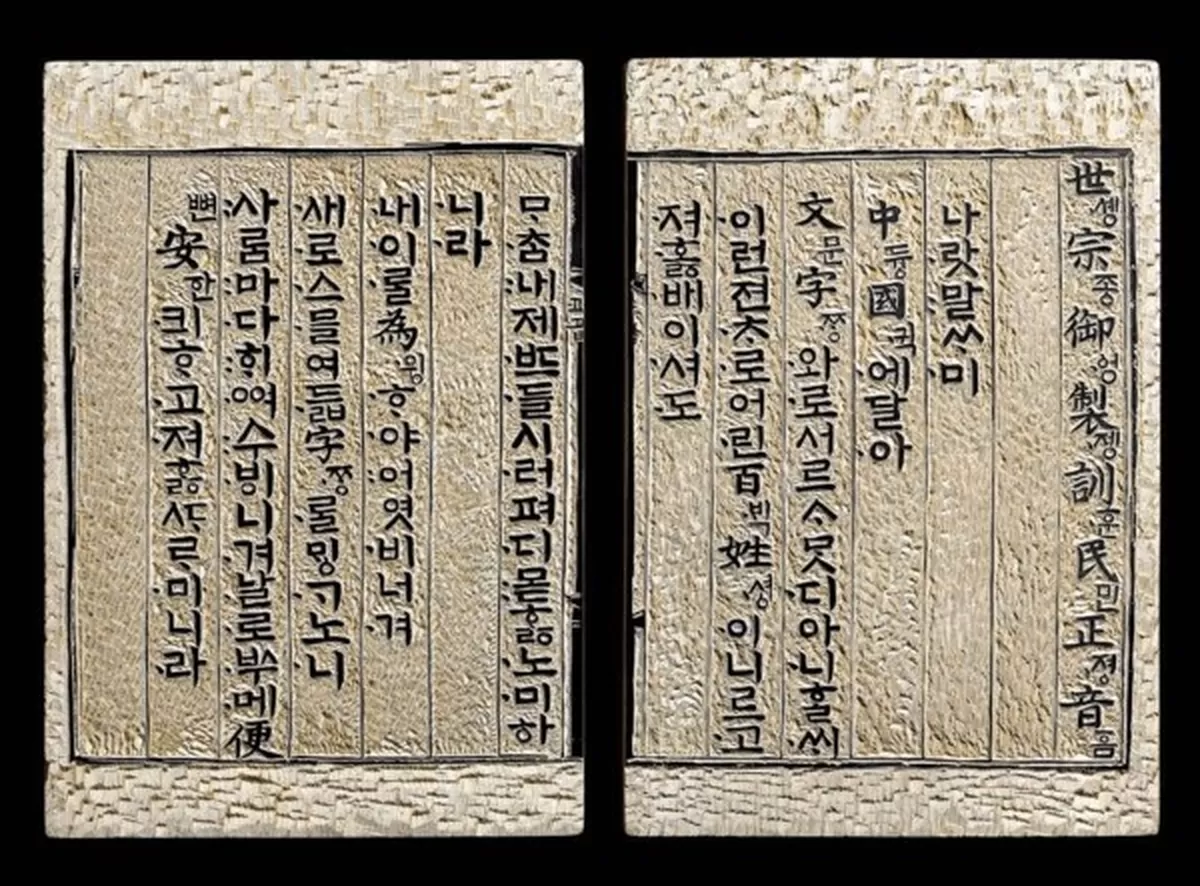 世솅宗종御엉製졩訓훈民민正졍音흠
나랏말ᄊᆞ미
中듀ᇰ國귁에달아
文문字ᄍᆞᆼ와로서르ᄉᆞᄆᆞᆺ디아니ᄒᆞᆯᄊᆡ
이런젼ᄎᆞ로어린百ᄇᆡᆨ姓셔ᇰ이니르고
져ᄒᆞᇙ배이셔도
ᄆᆞᄎᆞᆷ내제ᄠᅳ들시러펴디몯ᄒᆞᇙ노미하
니라
내이ᄅᆞᆯ為윙ᄒᆞ야어엿비너겨
새로스믈여듧字ᄍᆞᆼᄅᆞᆯᄆᆡᇰᄀᆞ노니
사ᄅᆞᆷ마다ᄒᆡᅇᅧ수ᄫᅵ니겨날로ᄡᅮ메便
뼌安ᅙᅡᆫ킈ᄒᆞ고져ᄒᆞᇙᄯᆞᄅᆞ미니라